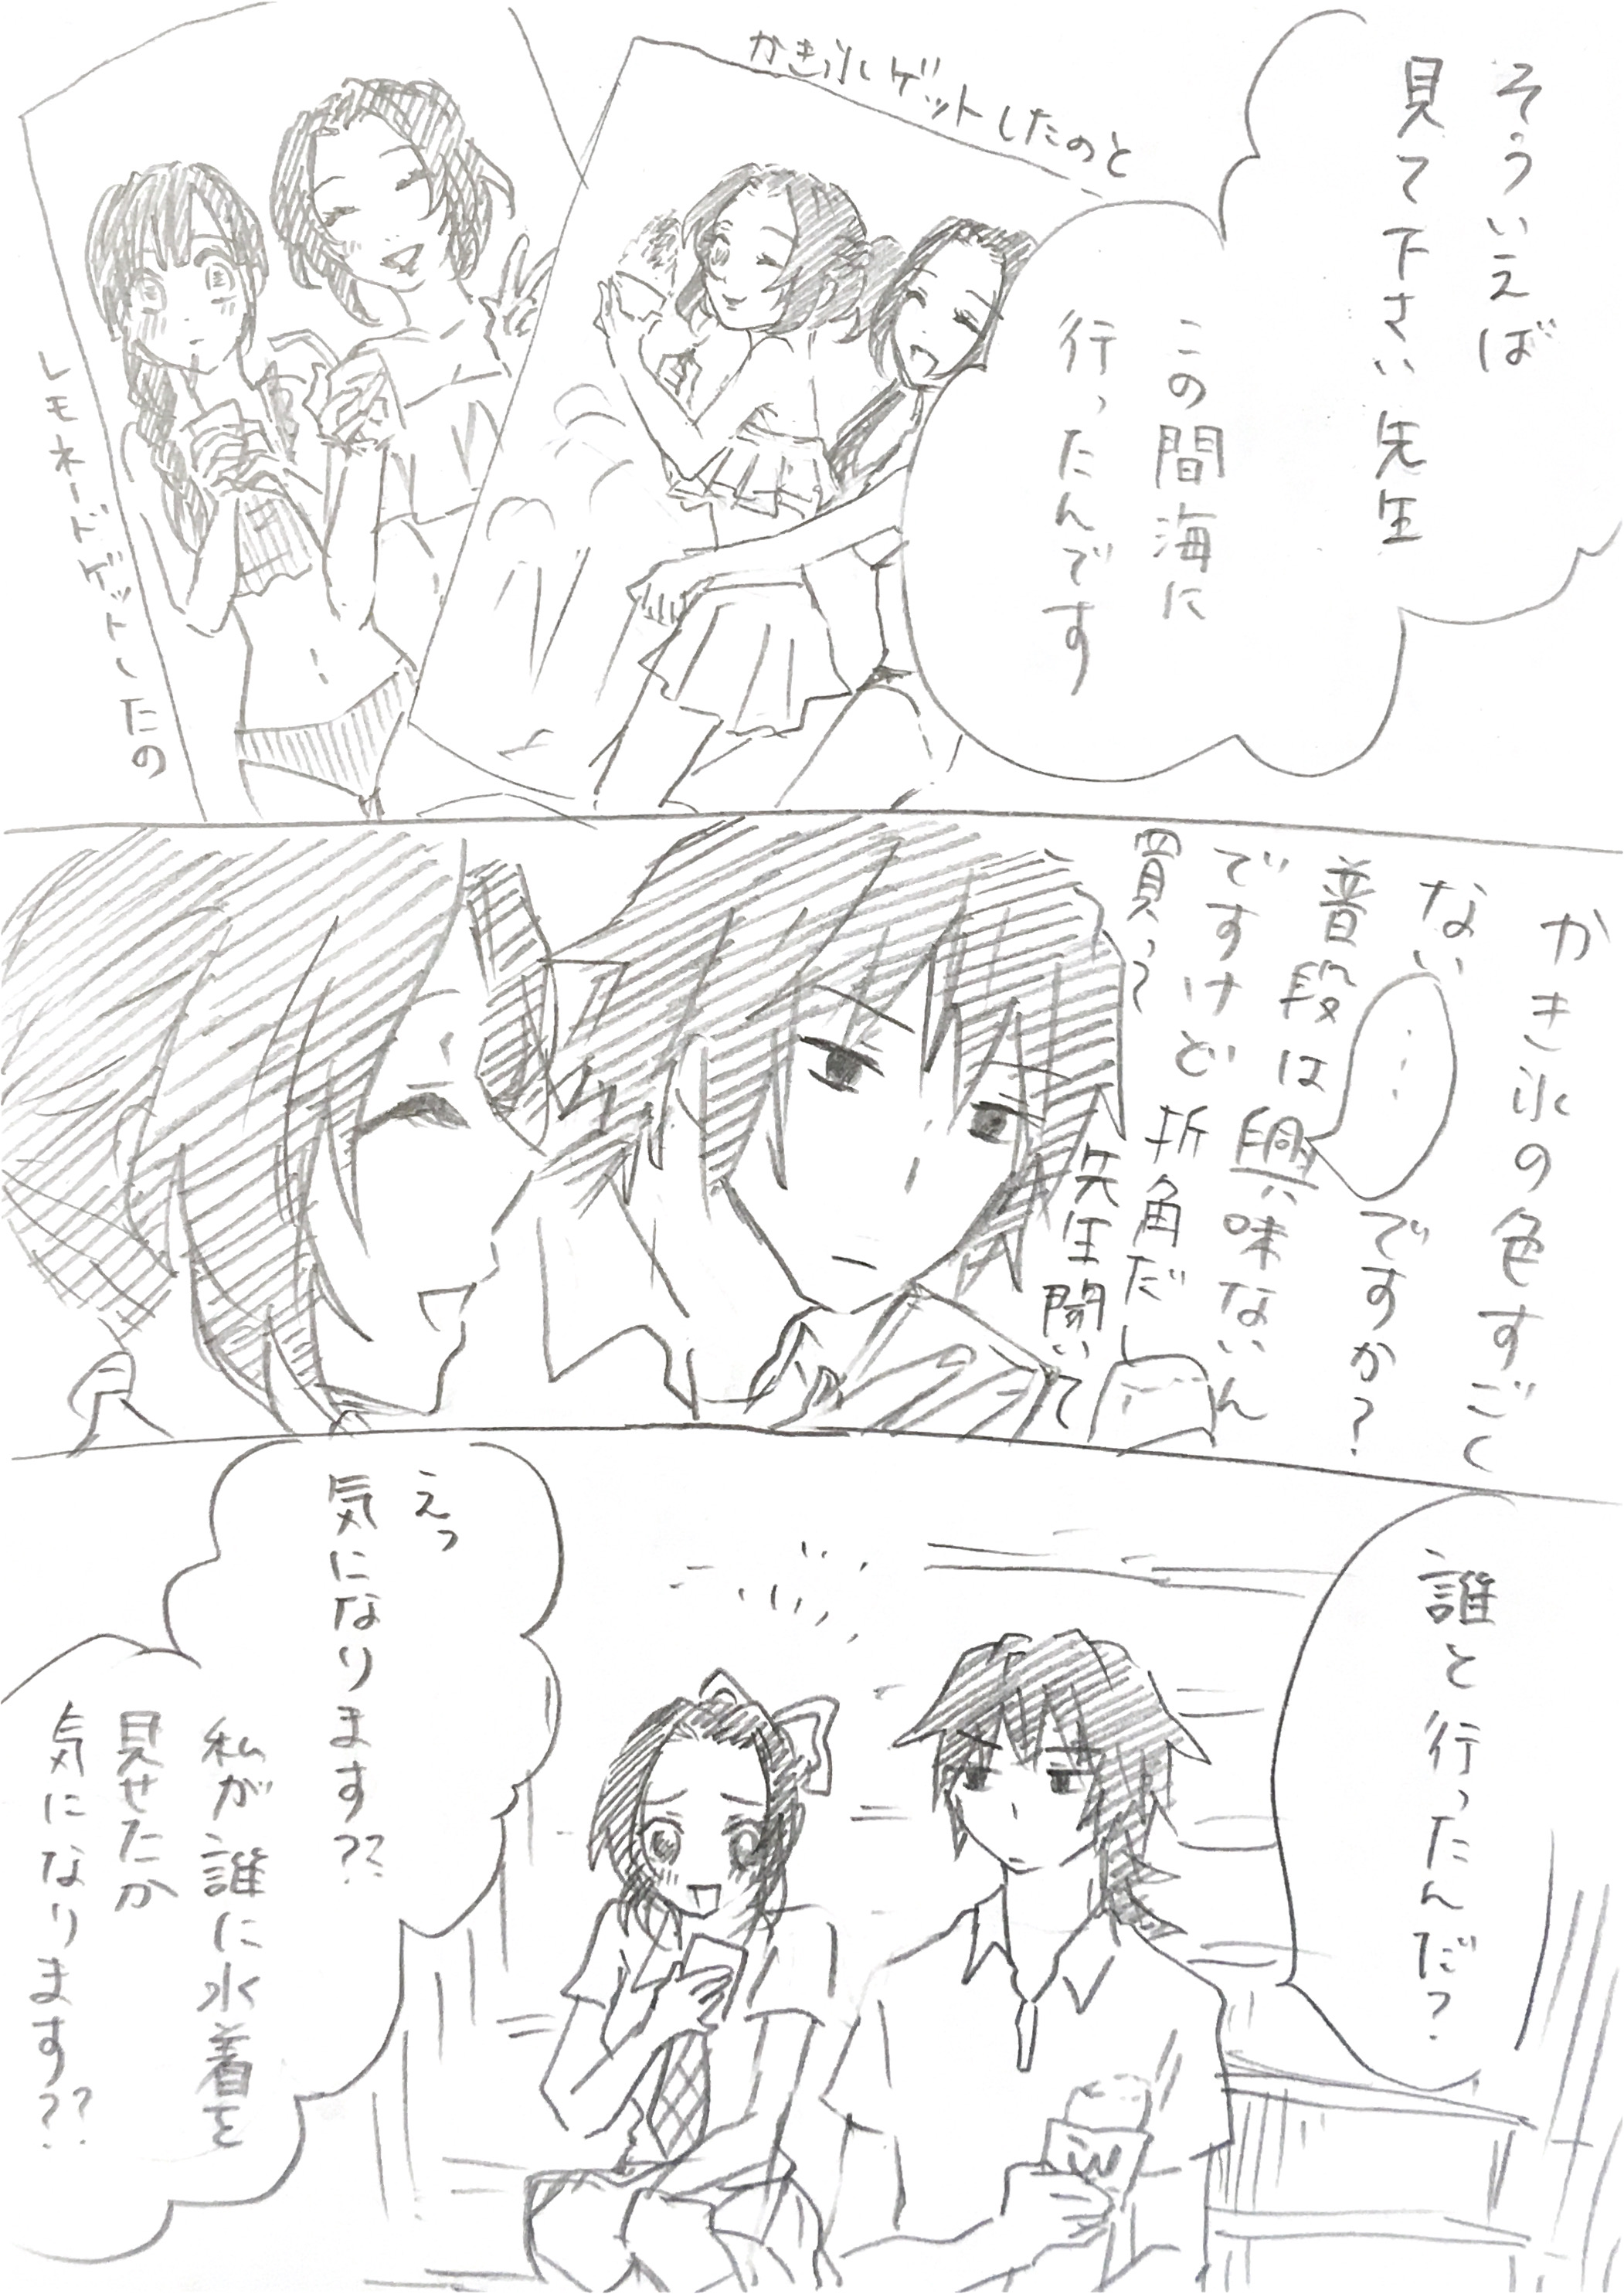 そういえば
見て下さい先生
この間海に
行ったんです
かき氷ゲットしたのと
レモネードゲットしたの
かき氷の色すごく
ない
ですか?
普段は興味ないん
ですけど折角だし
買って
先生聞いて
誰と行ったんだ?
えっ
気になります??
私が誰に水着を
見せたか
気になります??